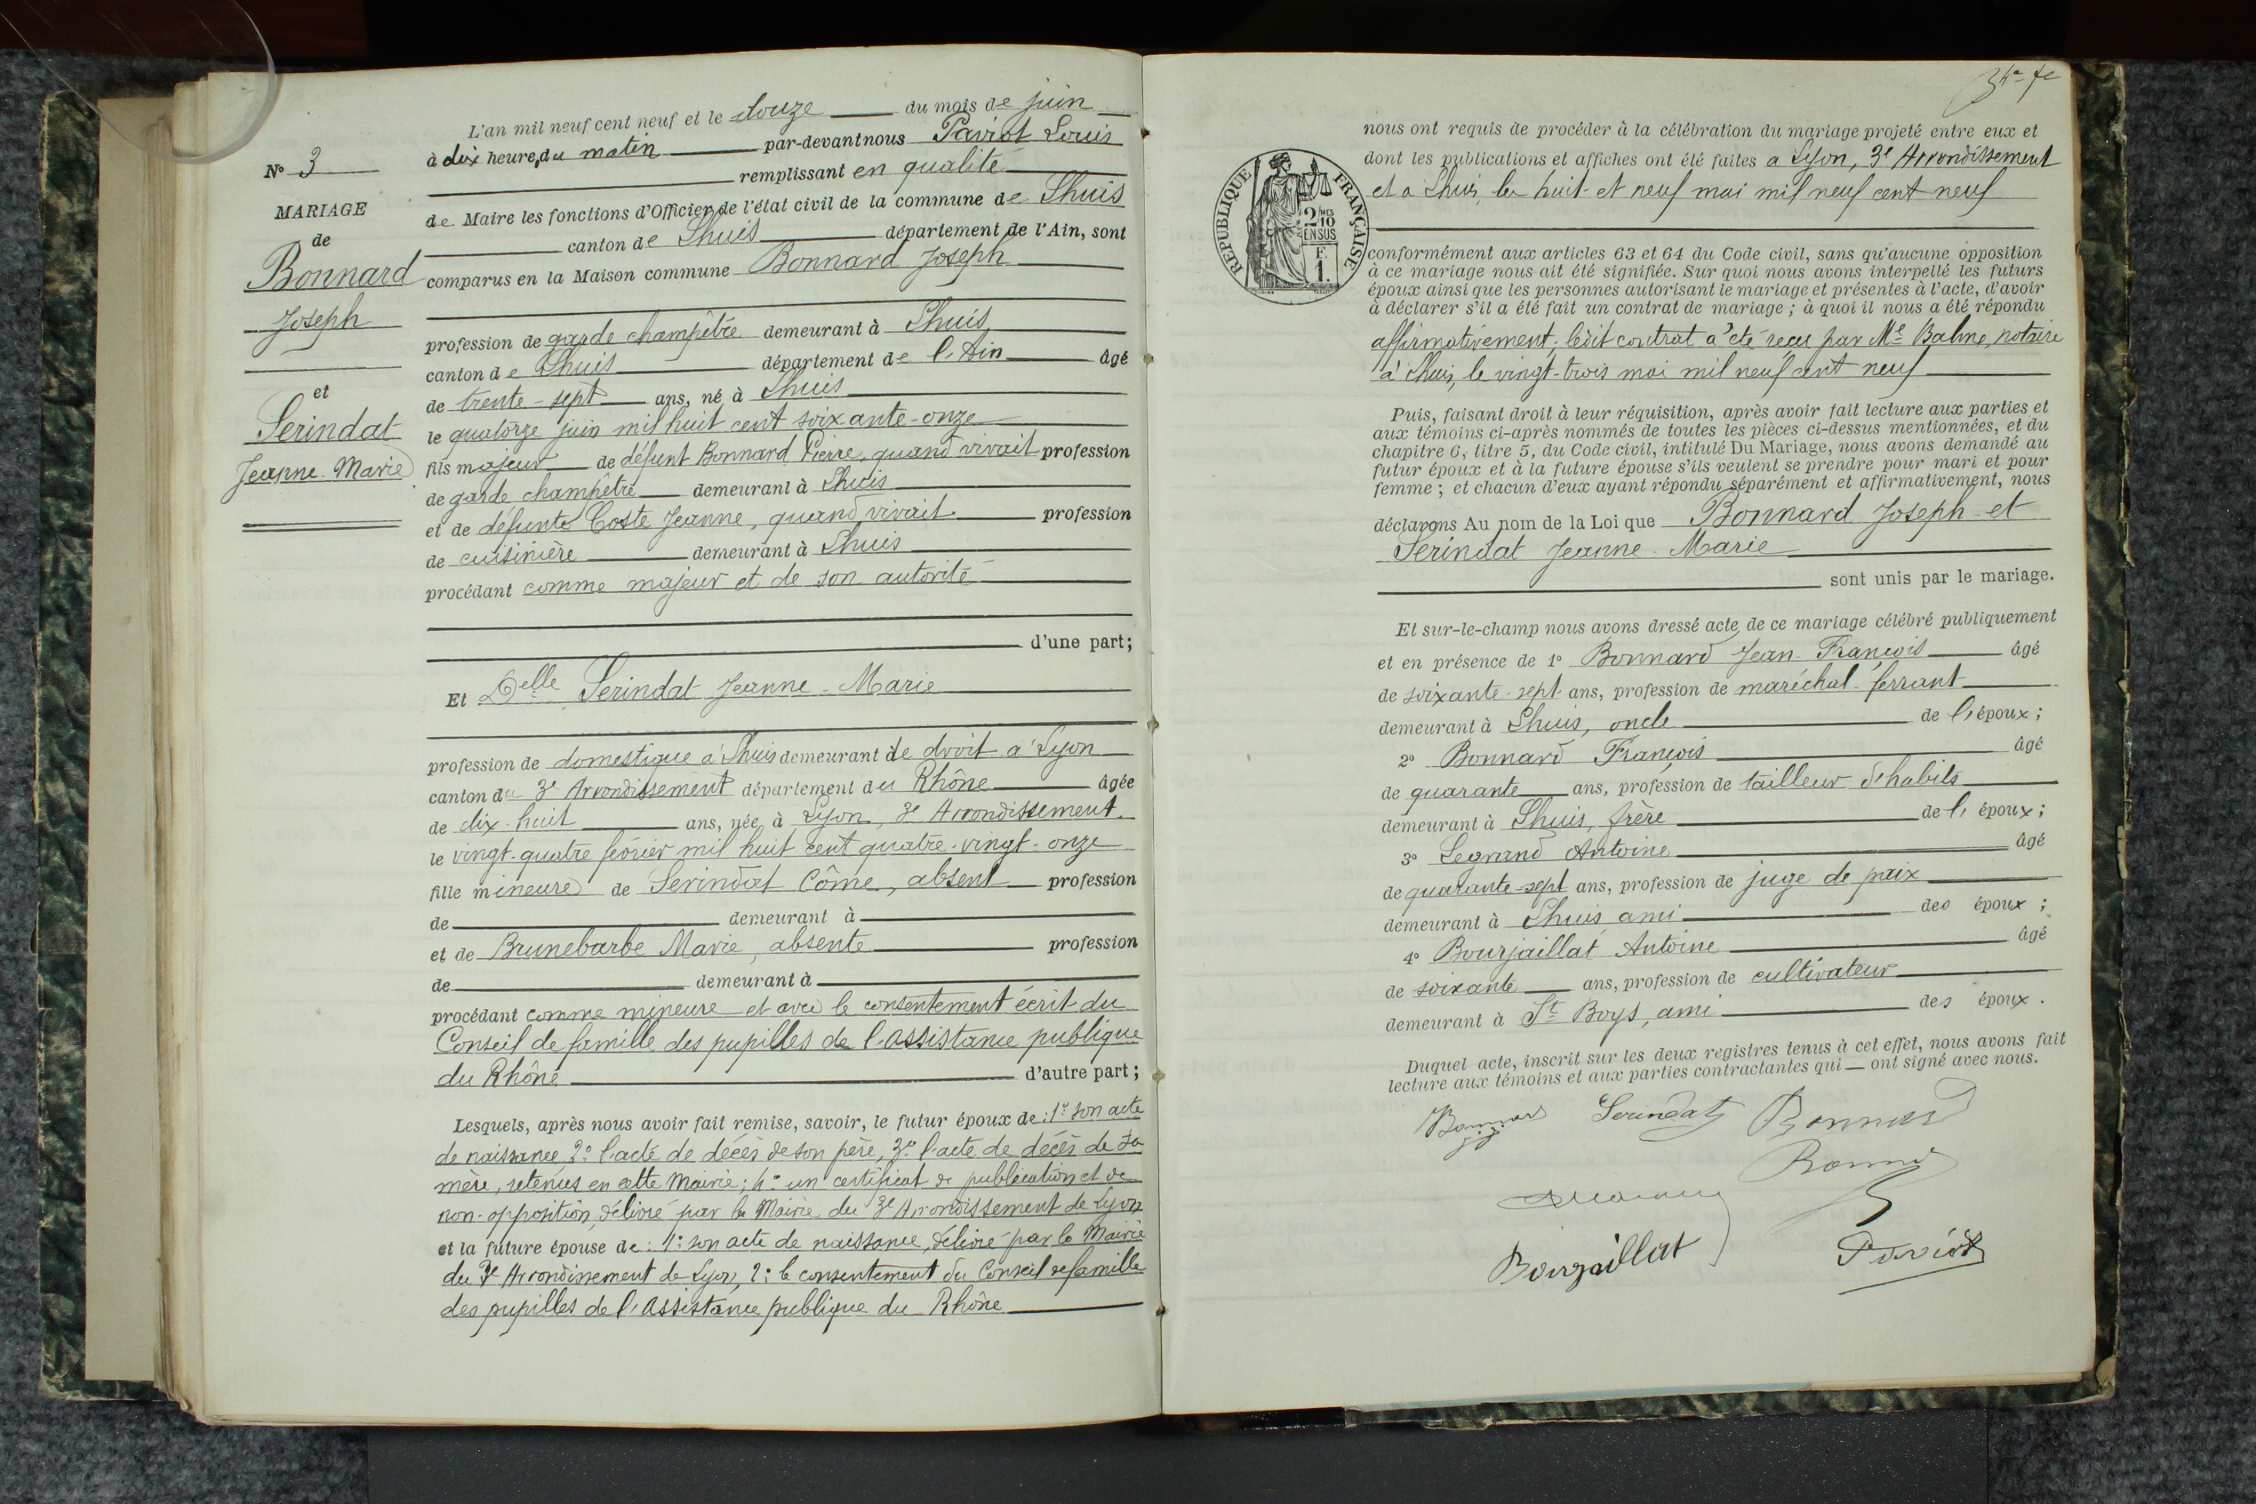 L'an mil neuf cent neuf et le douze du mois de juin
à dix heures du matin par-devant nous Paviot Louis
remplissant en qualité
de Maire les fonctions d'Officier de l'état civil de la commune de Lhuis
canton de Lhuis département de l'Ain, sont
comparus en la Maison commune Bonnard Joseph
profession de garde champêtre demeurant à Lhuis,
canton de Lhuis département de l'Ain âgé
de trente-sept ans, né à Lhuis
le quatorze juin mil huit cent soixante-onze
fils majeur de défunt Bonnard Pierre, quand vivait profession
de garde champêtre demeurant à Lhuis
et de défunte Coste Jeanne, quand vivait profession
de cuisinière demeurant à Lhuis
procédant comme majeur et de son autorité
d'une part;
Et Delle Serindat Jeanne-Marie
profession de domestique à Lhuis demeurant de droit à Lyon
canton du 3e Arrondissement département du Rhône âgée
de dix-huit ans, née à Lyon, 3e Arrondissement.
le vingt-quatre février mil huit cent quatre-vingt-onze
fille mineure de Serindat Côme, absent profession
de demeurant à
et de Brunebarbe Marie, absente profession
de demeurant à
procédant comme mineure et avec le consentement écrit du
Conseil de famille des pupilles de l'assistance publique
du Rhône d'autre part;
Lesquels, après nous avoir fait remise, savoir, le futur époux de: 1° son acte
de naissance 2° l'acte de décès de son père, 3° l'acte de décès de sa
mère, retenus en cette Mairie; 4° un certificat de publication et de
non-opposition, délivré par la Mairie du 3e Arrondissement de Lyon
et la future épouse de: 1° son acte de naissance, délivré par la Mairie
du 3e Arrondissement de Lyon, 2° le consentement du Conseil de famille
des pupilles de l'Assistance publique du Rhône
N° 3
MARIAGE
de
Bonnard
Joseph
et
Serindat
Jeanne-Marie
nous ont requis de procéder à la célébration du mariage projeté entre eux et
dont les publications et affiches ont été faites à Lyon, 3e Arrondissement
et à Lhuis, les huit et neuf mai mil neuf cent neuf
RÉPUBLIQUE FRANÇAISE
2/10 MES
EN SUS
F.
1.
conformément aux articles 63 et 64 du Code civil, sans qu'aucune opposition
à ce mariage nous ait été signifiée. Sur quoi nous avons interpellé les futurs
époux ainsi que les personnes autorisant le mariage et présentes à l'acte, d'avoir
à déclarer s'il a été fait un contrat de mariage; à quoi il nous a été répondu
affirmativement; ledit contrat a été reçu par Me Balme, notaire
à Lhuis, le vingt-trois mai mil neuf cent neuf
Puis, faisant droit à leur réquisition, après avoir fait lecture aux parties et
aux témoins ci-après nommés de toutes les pièces ci-dessus mentionnées, et du
chapitre 6, titre 5, du Code civil, intitulé Du Mariage, nous avons demandé au
futur époux et à la future épouse s'ils veulent se prendre pour mari et pour
femme; et chacun d'eux ayant répondu séparément et affirmativement, nous
déclarons Au nom de la Loi que Bonnard Joseph et
Serindat Jeanne-Marie
sont unis par le mariage.
Et sur-le-champ nous avons dressé acte de ce mariage célébré publiquement
et en présence de 1° Bonnard Jean-François âgé
de soixante-sept ans, profession de maréchal-ferrant
demeurant à Lhuis, oncle de l'époux;
2° Bonnard François âgé
de quarante ans, profession de tailleur d'habits
demeurant à Lhuis, frère de l'époux;
3° Legrand Antoine âgé
de quarante-sept ans, profession de juge de paix
demeurant à Lhuis ami des époux;
4° Bourjaillat Antoine âgé
de soixante ans, profession de cultivateur
demeurant à St Boys, ami des époux.
Duquel acte, inscrit sur les deux registres tenus à cet effet, nous avons fait
lecture aux témoins et aux parties contractantes qui ont signé avec nous.
Bonnard Serindat Bonnard
Bonnard
Bourjaillat Paviot